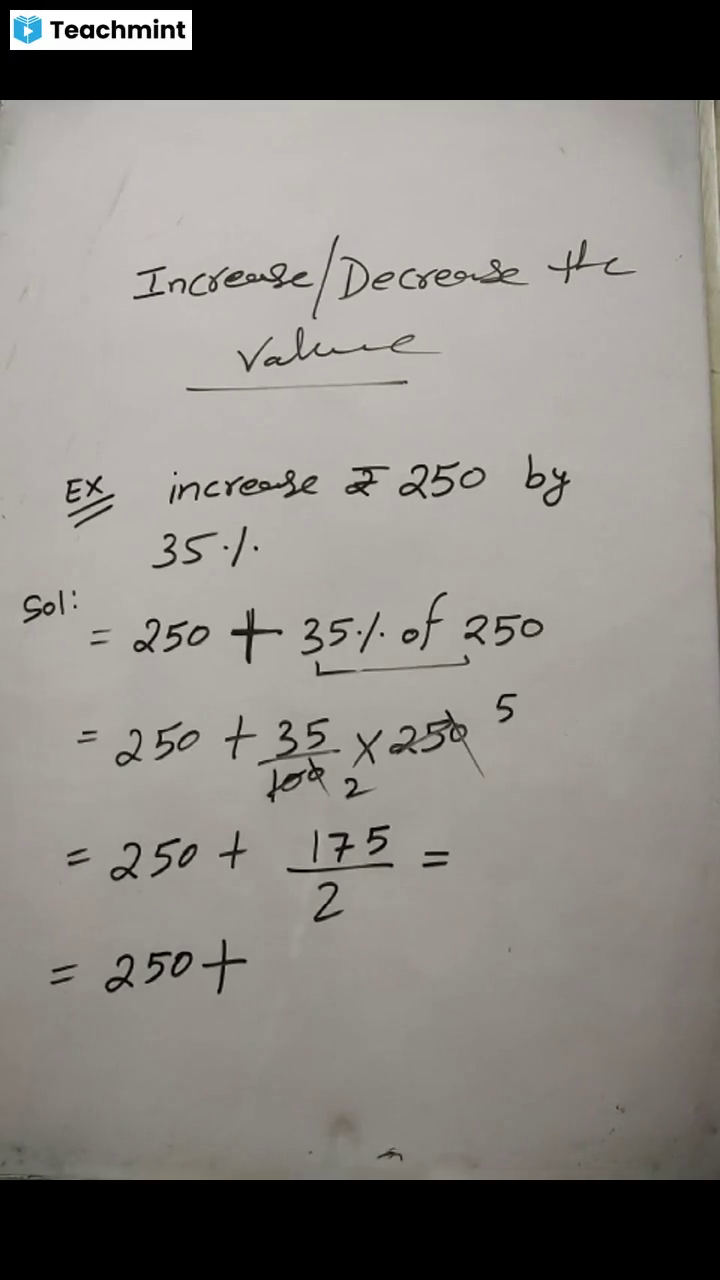 Teachmint
Increase/Decrease the
Value
Ex increase ₹ 250 by
35%
Sol:
= 250 + 35% of 250
= 250 + 35/100 2 × 250 5
= 250 + 175/2 =
= 250 +